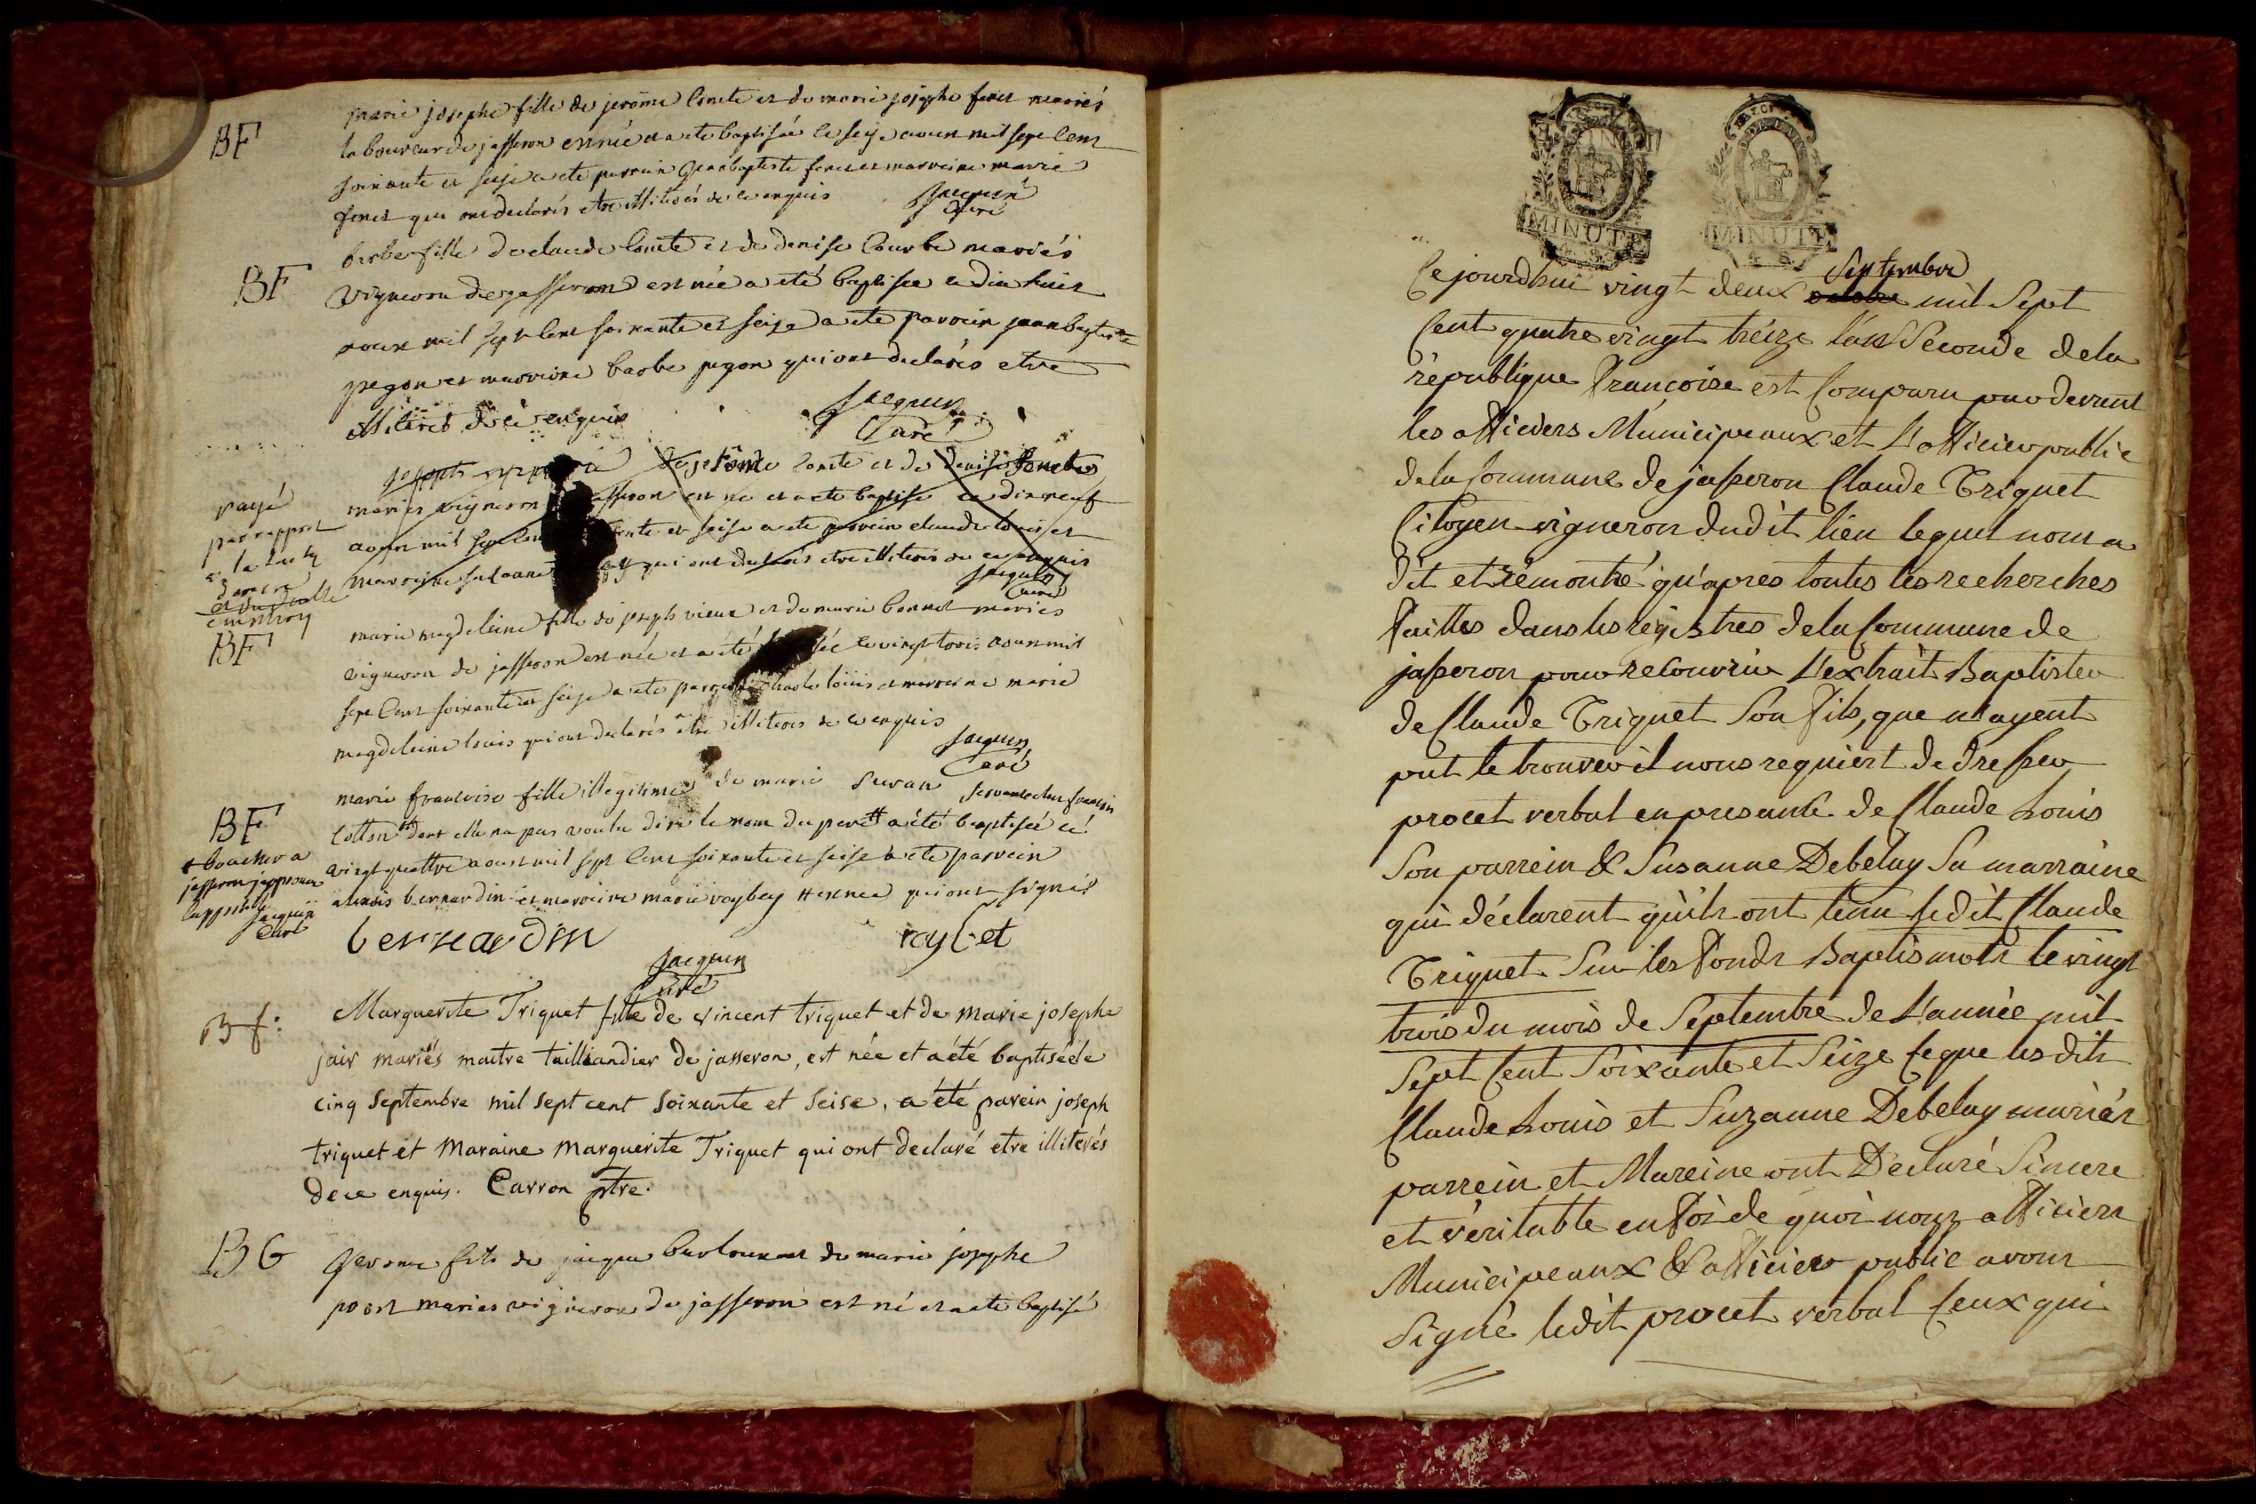 BF
marie josephe fille de jerome Comte et de marie josephe feret mariés
laboureur de jasseron est née et a eté baptisée le seize aoust mil sept cent
soixante et seize a eté parrain jean baptiste feret et marreine marie
feret qui ont declarés etre illiterés de ce enquis
Jacquin
Curé
BF
barbe fille de claude Comte et de denise Courbe mariés
vigneron de jasseron est née a eté baptisée le dix huit
aoust mil sept cent soixante et seize a eté parrein jean baptiste
pegon et marreine barbe pegon qui ont declarés etre
illiterés de ce enquis
Jacquin
Curé
rayé
par rapport
a la tache
d'encre
joseph de jerome Comte et de denise
mariés vigneron jasseron est né et a eté baptisé le dix neuf
aoust mil sept cent et seise a eté parrein claude louis et
marreine qui ont declarés etre illiterés de ce enquis
Jacquin
Curé
BF
marie magdeleine fille de joseph vieux et de marie bonnet mariés
vigneron de jasseron est née et a été le vingt trois aoust mil
sept cent soixante et seise a eté parrein louis et marreine marie
magdeleine louis qui ont declarés être illiterés de ce enquis
Jacquin
Curé
BF
marie francoise fille illegitime de marie suran servante chez francois
cotton dont elle n'a pas voulu dire le nom du pere a été baptisée le
vingt quattre aoust mil sept cent soixante et seise a eté parrein
bernardin et marreine marie qui ont signés
+ boucher a
jasseron japprouve
Jacquin
Curé
bernardin
raybet
Jacquin
Curé
B f:
Marguerite Triquet fille de vincent triquet et de marie josephe
jair mariés maitre tailliandier de jasseron, est née et a été baptisée le
cinq septembre mil sept cent soixante et seise, a été parein joseph
triquet et maraine marguerite Triquet qui ont declaré etre illiterés
de ce enquis. Carron ptre.
BG
jerome fils de jacque et de marie josephe
mariés vigneron de jasseron est né et a eté baptisé
MINUTE
MINUTE
septembre
Cejourd'hui vingt deux octobre mil Sept
Cent quatre vingt treize l'an Seconde de la
république françoise est Comparu par devent
les officiers Municipeaux et L'officier public
de la Commune de jasseron Claude Triquet
Citoyen vigneron dudit lieu lequel nous a
dit et rémontré qu'apres toutes les recherches
faittes dans les régistres de la Commune de
jasseron pour recouvrir L'extrait Baptister
de Claude Triquet Son fils, que n'ayent
put le trouver il nous requiert de dresser
procet verbal en presance de Claude Louis
Son parrein & Susanne Debelay Sa marraine
qui déclarent qu'ils ont tenu ledit Claude
Triquet Sur les fonds Baptismots le vingt
trois du mois de Septembre de L'année mil
Sept Cent Soixante et Seize Ce que les dits
Claude Louis et Suzanne Debelay mariés
parrein et Mareine ont Déclaré Sincere
et véritable en foi de quoi nous officiers
Municipeaux & officier public avons
Signé ledit procet verbal Ceux qui